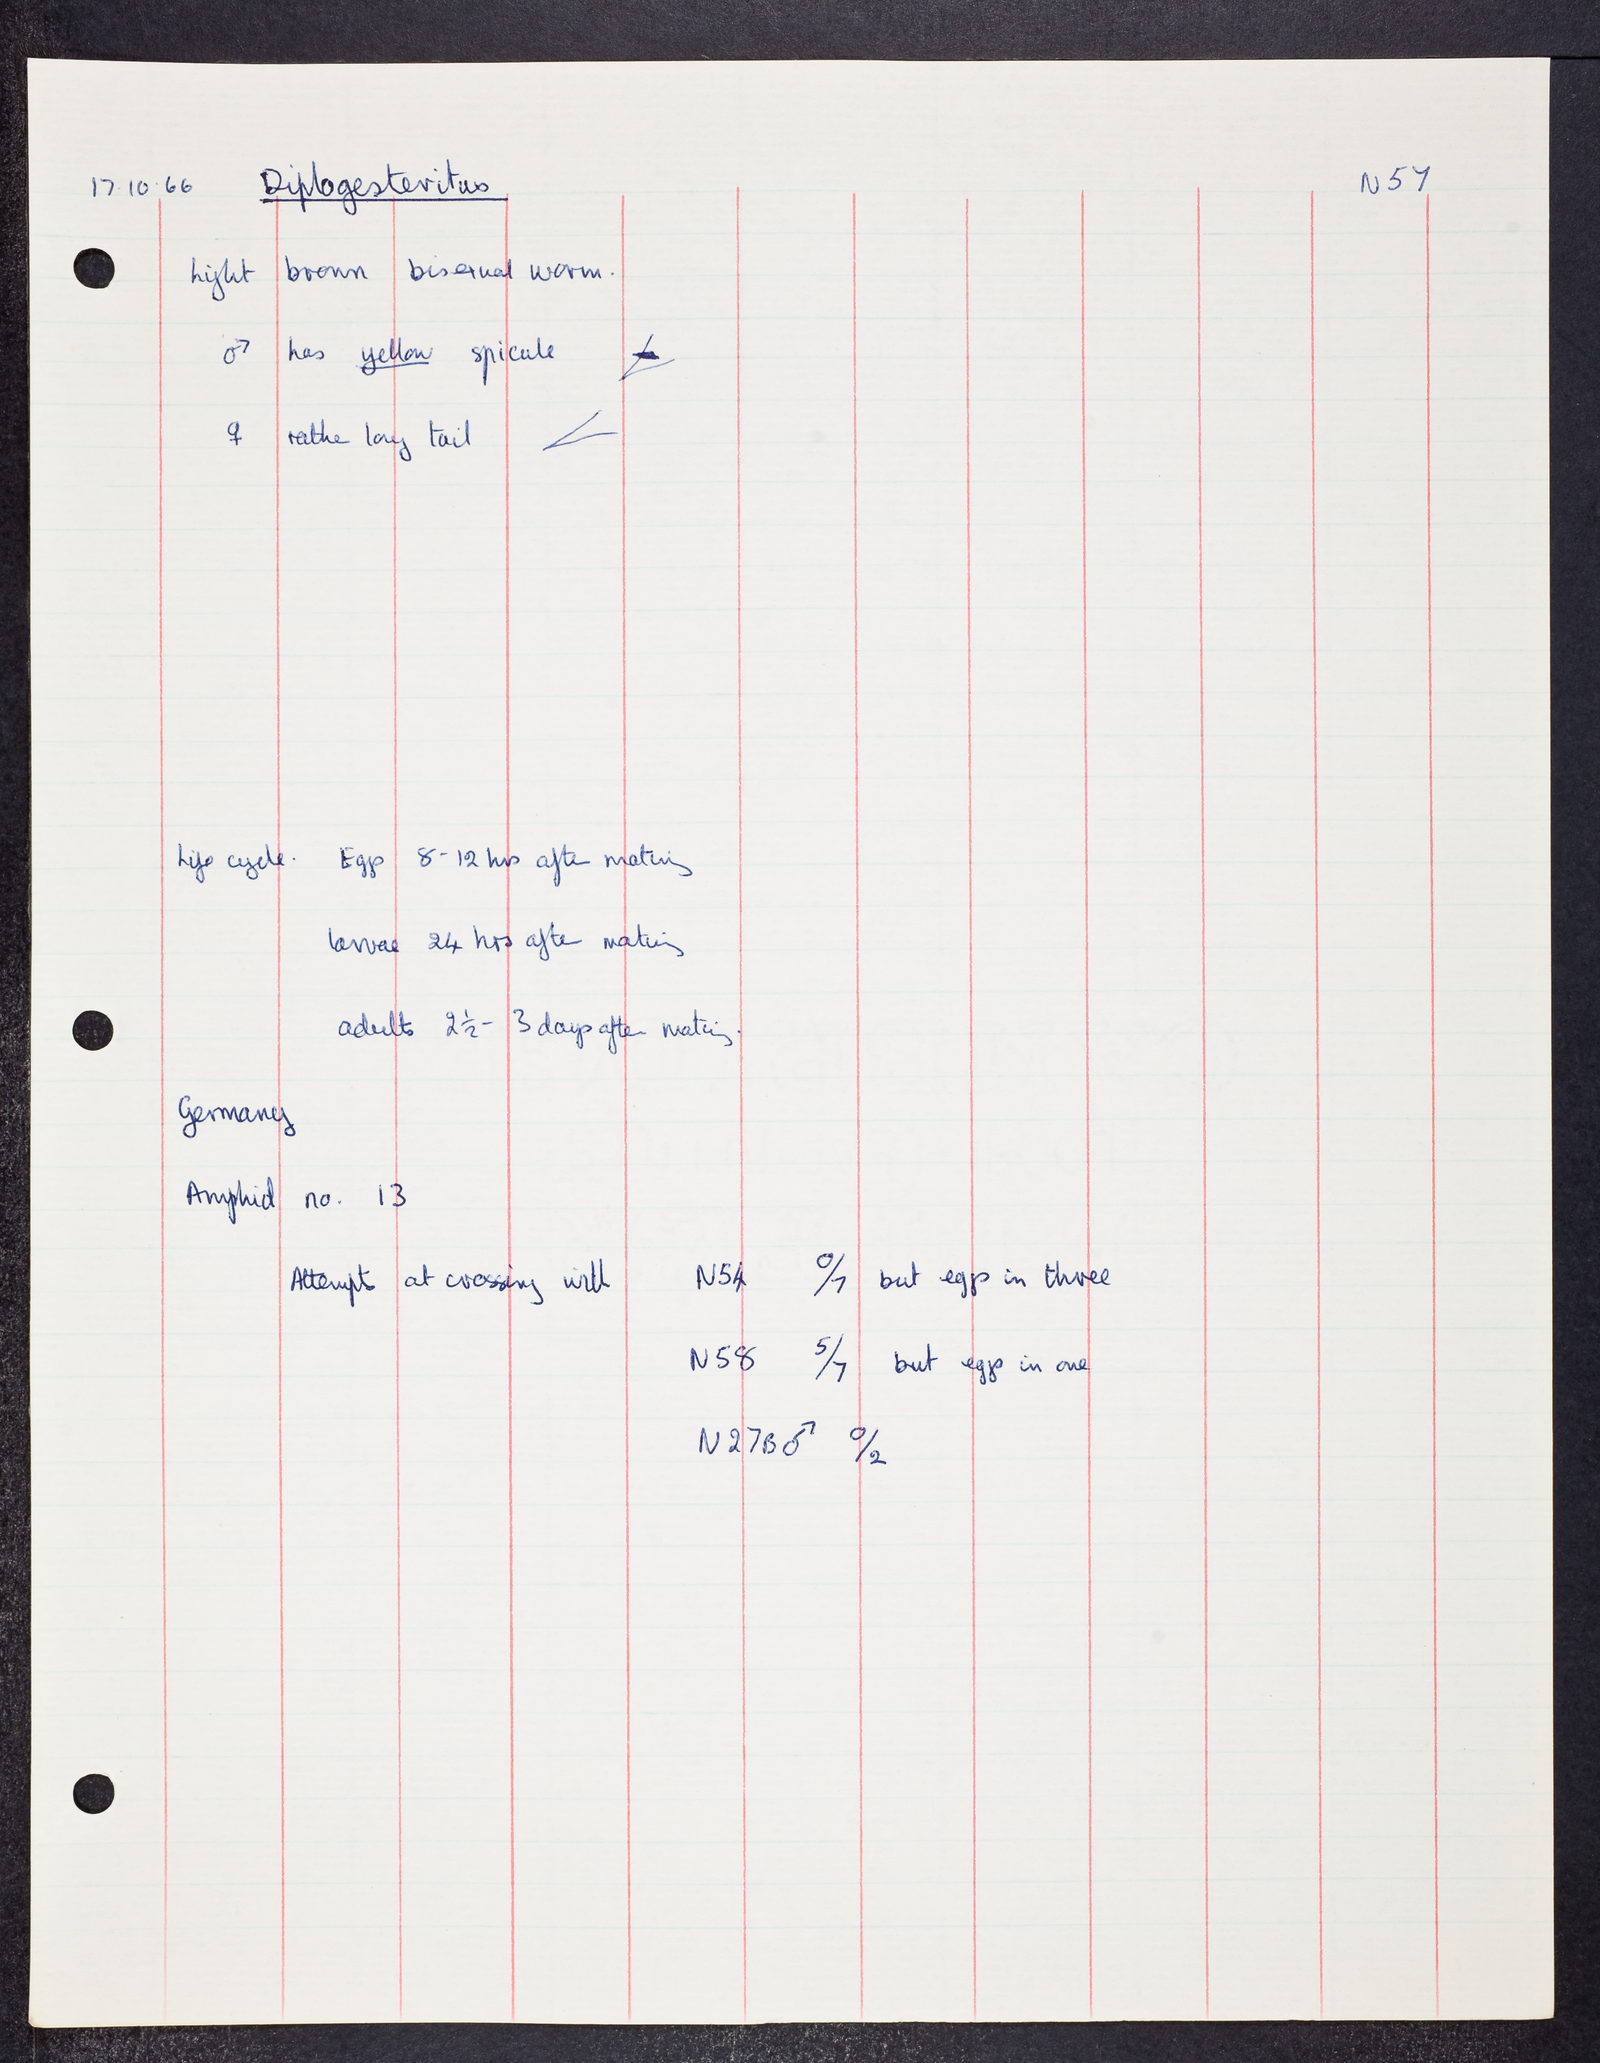 17.10.66 Diplogesteritus N57
Light brown bisexual worm.
♂ has yellow spicule
♀ rather long tail
Life cycle. Eggs 8-12 hrs after mating
larvae 24 hrs after mating
adults 2½ - 3 days after mating.
Germany
Amphid no. 13
Attempts at crossing with N54 0/7 but eggs in three
N58 5/7 but eggs in one
N27B♂ 0/2